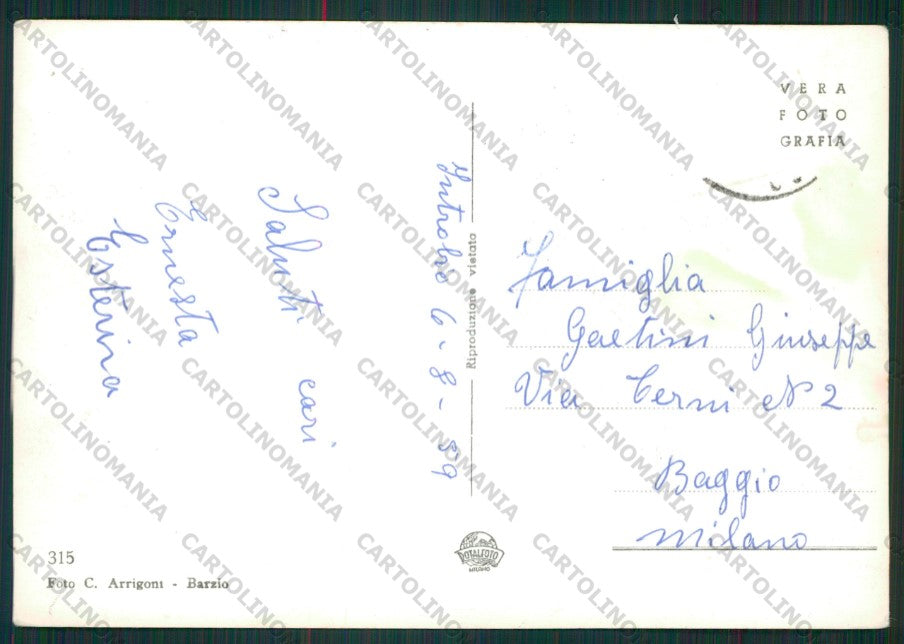 VERA
FOTO
GRAFIA
Introbio 6-8-59
Saluti cari
Ernesta
Esterina
Riproduzione vietata
Famiglia
Gaetini Giuseppe
Via Terni N 2
Baggio
Milano
315
Foto C. Arrigoni - Barzio
ROTALFOTO
MILANO
CARTOLINOMANIA